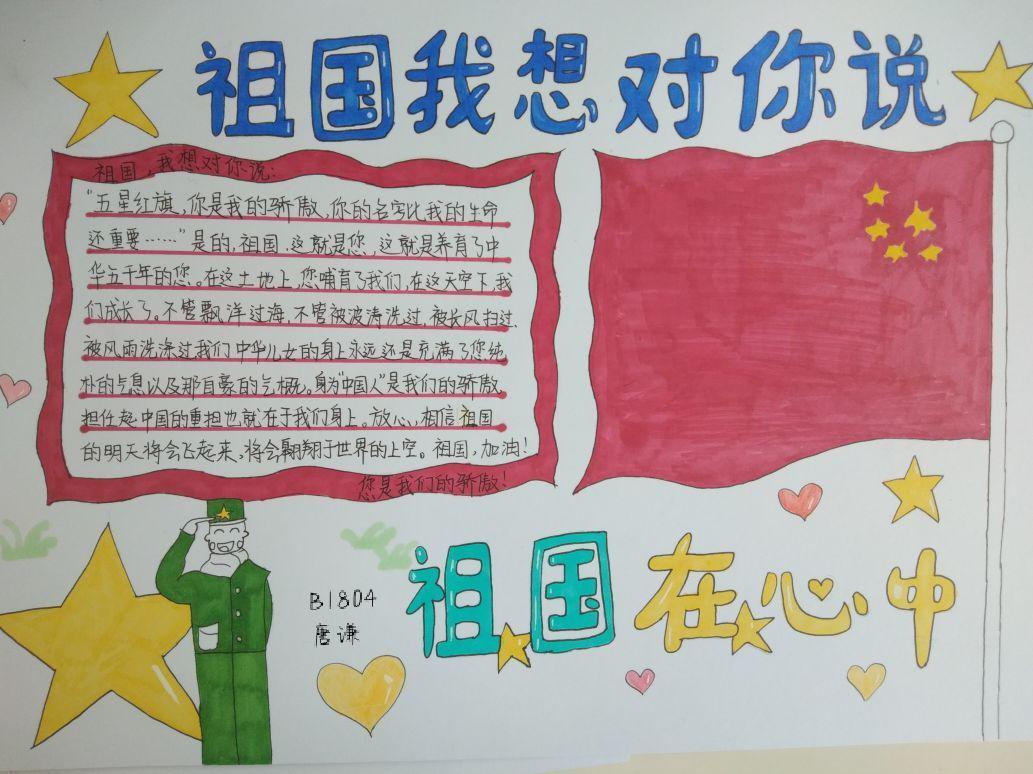 祖国我想对你说
祖国，我想对你说：
“五星红旗，你是我的骄傲，你的名字比我的生命
还重要……”是的，祖国，这就是您，这就是养育了中
华五千年的您。在这土地上，您哺育了我们，在这天空下，我
们成长了。不管飘洋过海，不管被波涛洗过，被长风扫过，
被风雨洗涤过我们中华儿女的身上永远还是充满了您纯
朴的气息以及那自豪的气概。身为“中国人”是我们的骄傲，
担任起中国的重担也就在于我们身上。放心，相信祖国
的明天将会飞起来，将会翱翔于世界的上空。祖国，加油！
您是我们的骄傲！
B1804
唐谦
祖国在心中